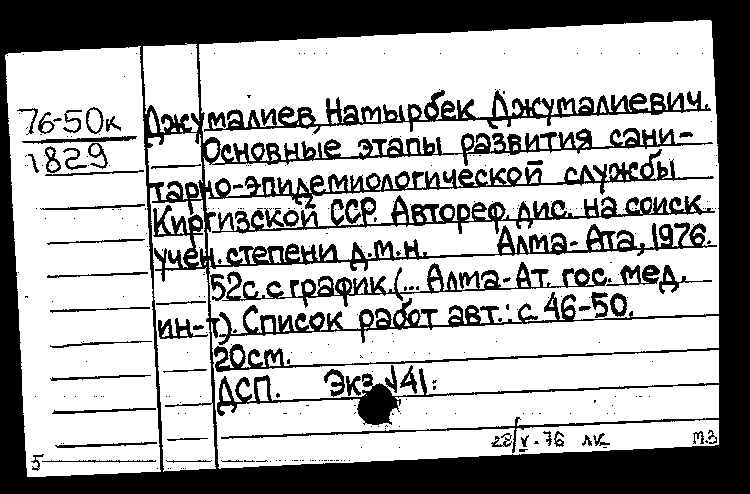 76-50к
1829
Джумалиев, Натырбек Джумалиевич.
Основные этапы развития сани-
тарно-эпидемиологической службы
Киргизской ССР. Автореф. дис. на соиск.
учен. степени д.м.н. Алма-Ата, 1976.
52с. с график. (... Алма-Ат. гос. мед.
ин-т). Список работ авт.: с. 46-50.
20см.
ДСП. Экз. №41.
23/V-76 лк м.з
5